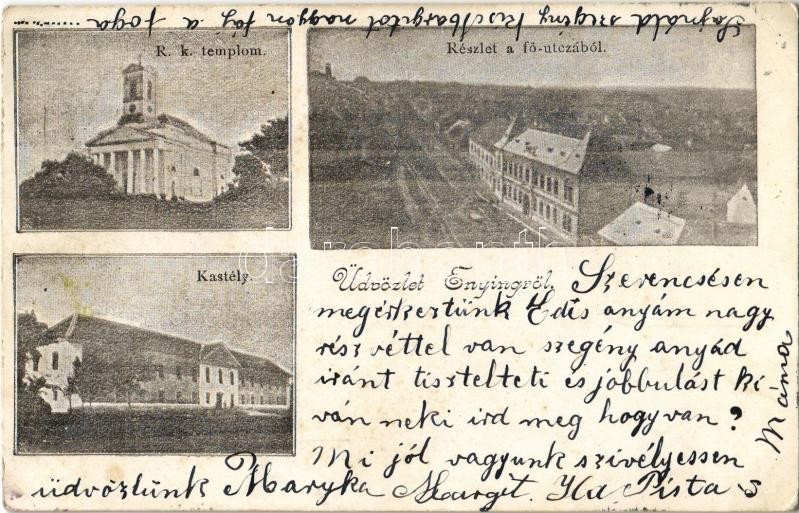 Sajnáld szegény kis Margitot nagyon fáj a foga
R. k. templom.
Részlet a fő-utczából.
Kastély.
darabanth
Üdvözlet Enyingről.
Szerencsésen
megérkeztünk Edis anyám nagy
rész véttel van szegény anyád
iránt tisztelteti és jobbulást ki
ván neki ird meg hogy van?
Mi jól vagyunk szivélyessen
üdvözlünk Maryka Margit. Pista s
Máma